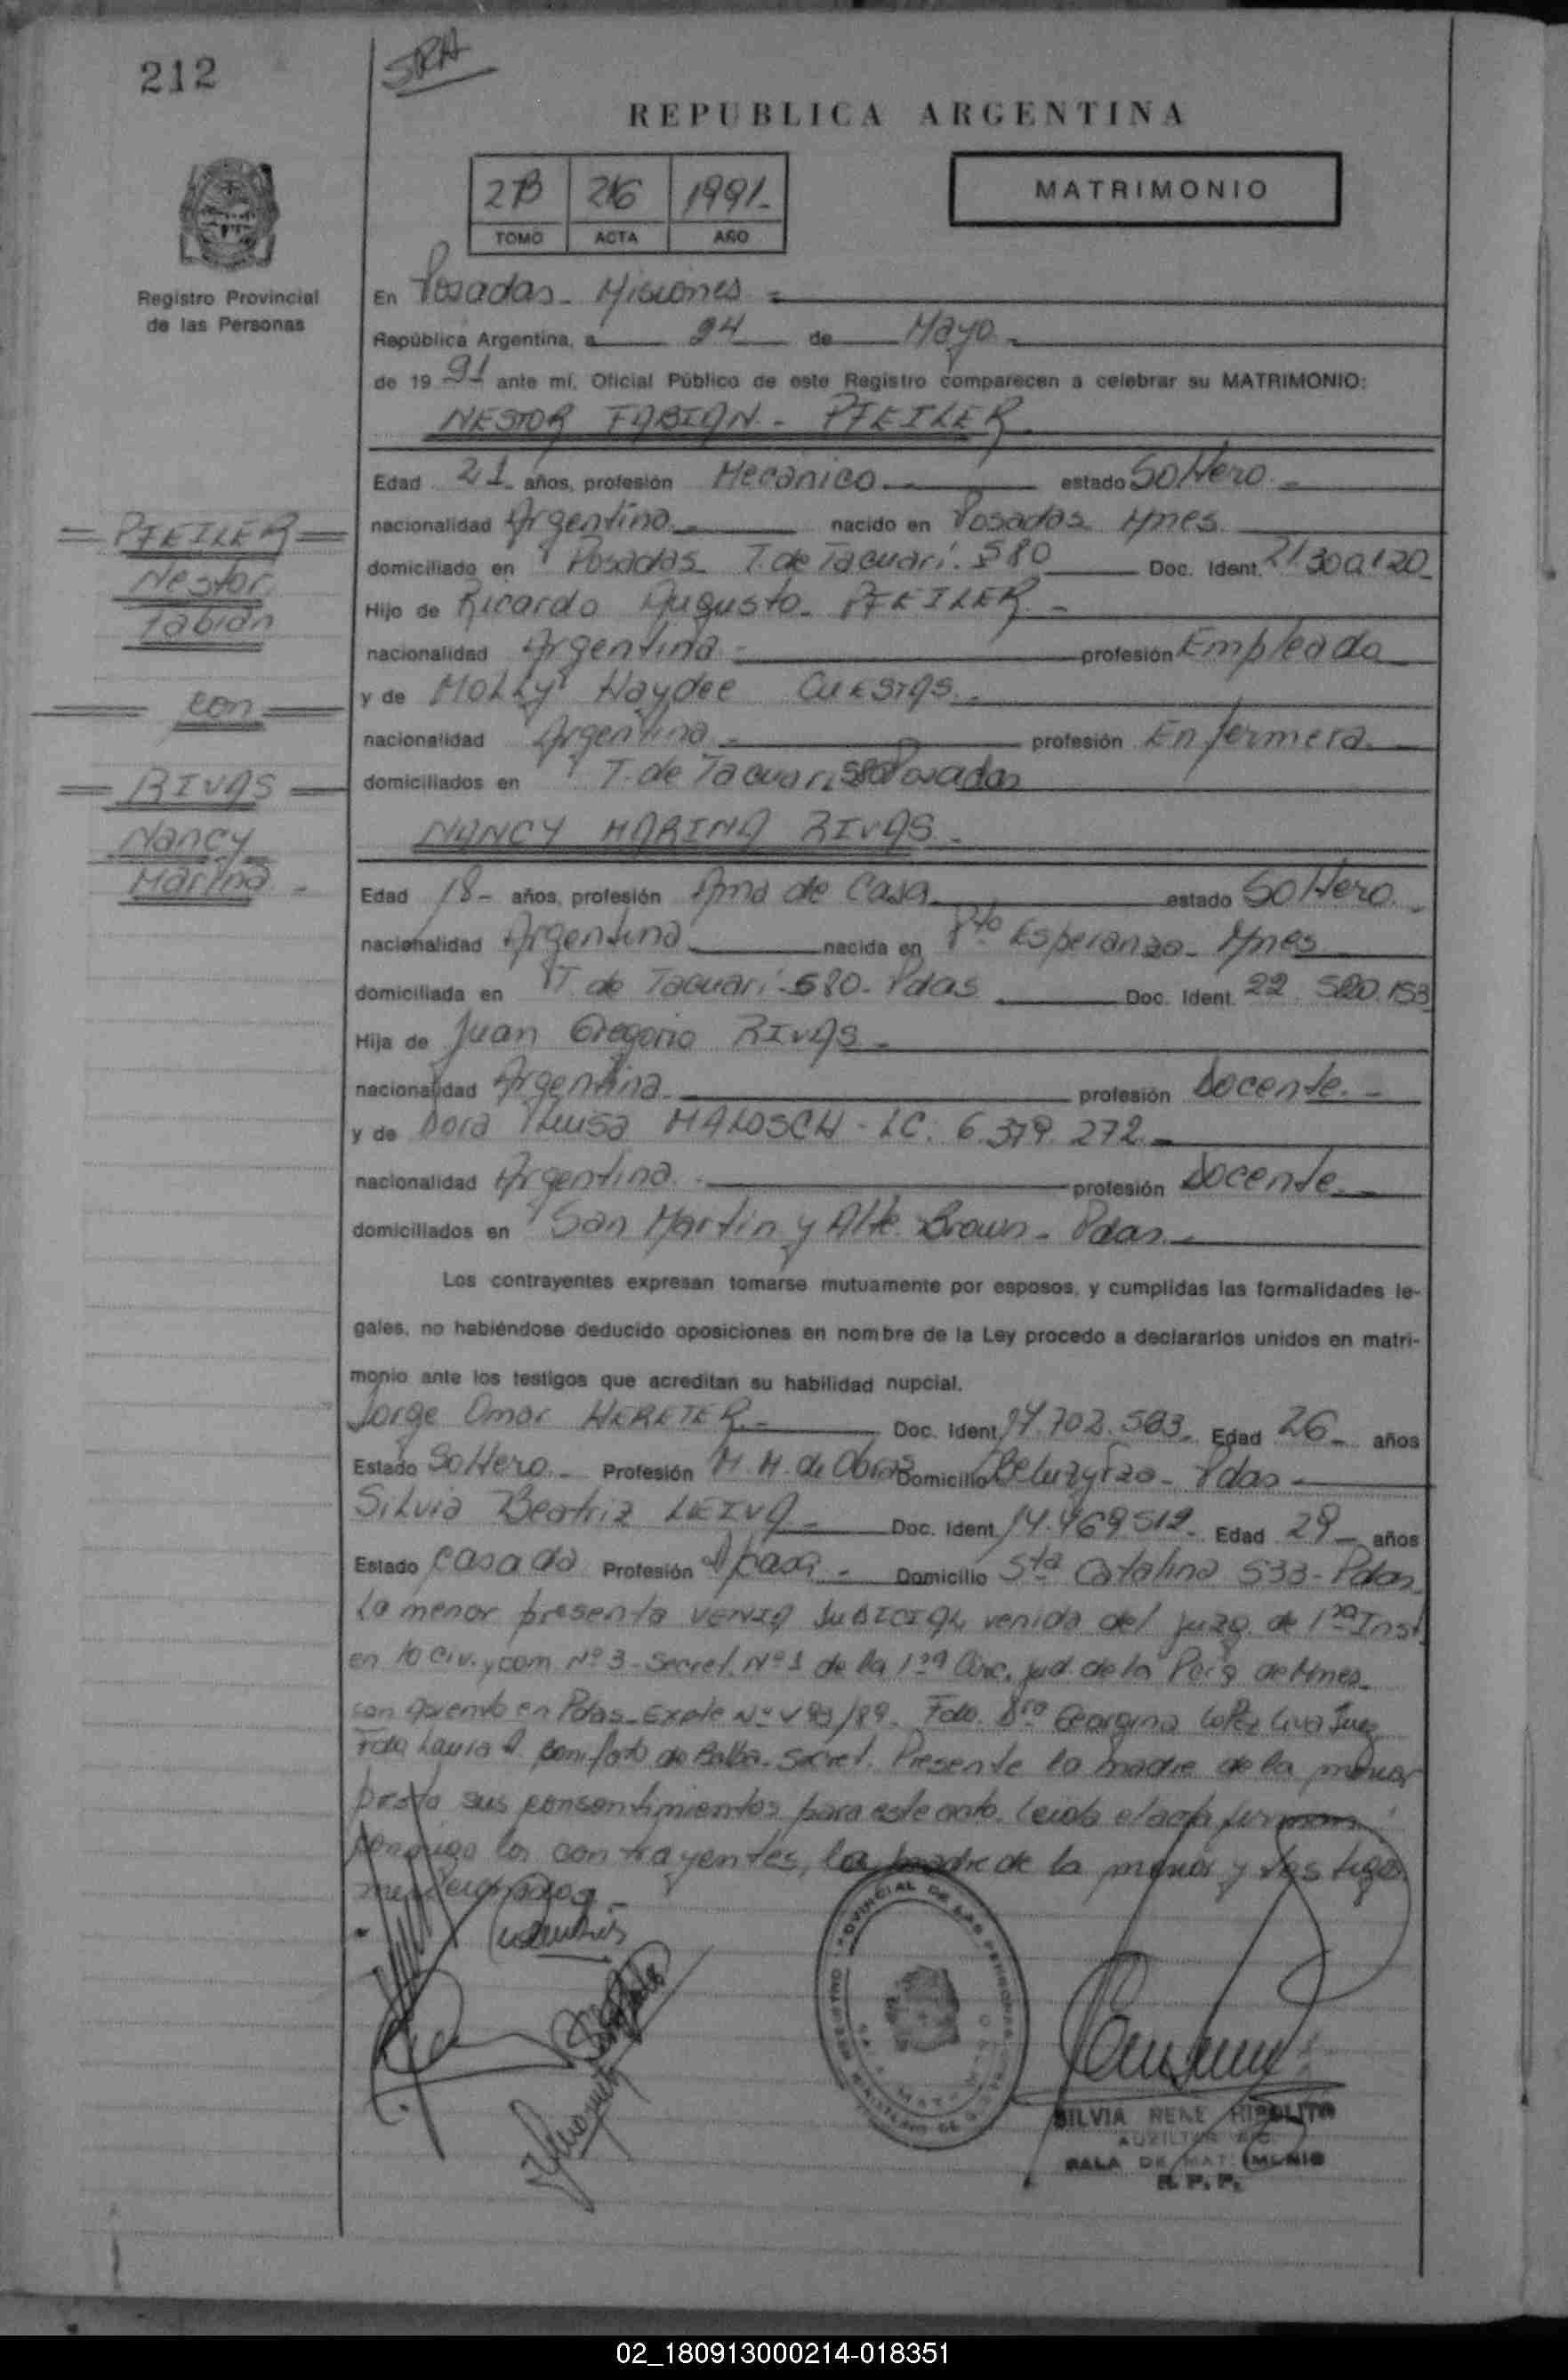 212
SRA
REPUBLICA ARGENTINA
2B 216 1991.-
TOMO ACTA AÑO
MATRIMONIO
Registro Provincial
de las Personas
En Posadas - Misiones =
República Argentina, a 24 de Mayo -
de 19 91 ante mí, Oficial Público de este Registro comparecen a celebrar su MATRIMONIO:
NESTOR FABIAN - PFEILER
Edad 21 años, profesión Mecánico estado Soltero -
nacionalidad Argentina nacido en Posadas Mnes.
domiciliado en Posadas T. de Tacuarí. 580 Doc. Ident. 21.300.120
Hijo de Ricardo Augusto - PFEILER -
nacionalidad Argentina - profesión Empleado
y de MoLLy Haydee CUESTAS -
nacionalidad Argentina - profesión Enfermera -
domiciliados en T. de Tacuarí 580 Posadas
NANCY MARINA RIVAS -
Edad 18 - años, profesión Ama de Casa estado Soltero -
nacionalidad Argentina nacida en Pto Esperanza - Mnes
domiciliada en T. de Tacuarí - 580 - Pdas Doc. Ident. 22.580.153
Hija de Juan Gregorio RIVAS -
nacionalidad Argentina profesión Docente. -
y de Dora Luisa MALOSCH - LC. 6.379.272 -
nacionalidad Argentina profesión Docente -
domiciliados en San Martín y Alte Brown - Pdas. -
Los contrayentes expresan tomarse mutuamente por esposos, y cumplidas las formalidades le-
gales, no habiéndose deducido oposiciones en nombre de la Ley procedo a declararlos unidos en matri-
monio ante los testigos que acreditan su habilidad nupcial.
Jorge Omar HERETER - Doc. Ident. 17.702.583 Edad 26 - años
Estado Soltero - Profesión M. M. de Obras Domicilio - Pdas -
Silvia Beatriz LEIVA - Doc. Ident. 14.469.512 - Edad 29 - años
Estado Casada Profesión A/casa - Domicilio Sta Catalina 533 - Pdas
La menor presenta VENIA JUDICIAL venida del Juzg. de 1ra Inst.
en lo Civ. y com Nº 3 - Secret. Nº 1 de la 1ra Circ. Jud. de la Pcia de Mnes -
con en Pdas - Expte Nº /89. Fdo. Dra Georgina López Juez
Fdo Laura de Balba - Secret. Presente la madre de la menor
presta sus consentimientos para este acto. Leida el acta firman
conmigo los contrayentes, la madre de la menor y testigos
mencionados -
= PFEILER =
Nestor
Fabián
= con =
= RIVAS =
Nancy
Marina -
REGISTRO PROVINCIAL DE LAS PERSONAS
SILVIA RENE HIPOLITO
AUXILIAR
SALA DE MATRIMONIO
R. P. P.
02_180913000214-018351